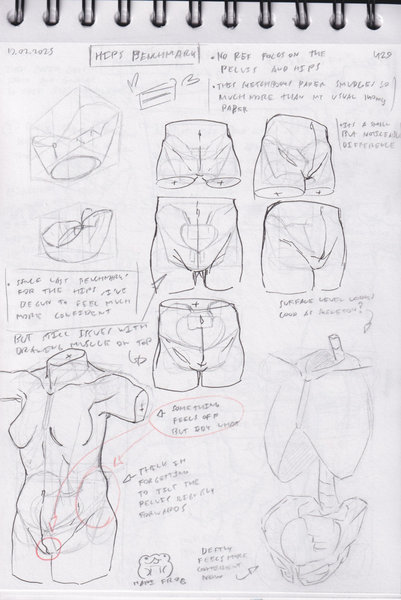 HIPS BENCHMARK
• NO REF FOCUS ON THE
PELVIS AND HIPS
• THIS SKETCHBOOKS PAPER SMUDGES SO
MUCH MORE THAN MY USUAL
PAPER
• ITS A SMALL
BUT NOTICEABLE
DIFFERENCE
• SINCE LAST BENCHMARK
FOR THE HIPS I'VE
BEGUN TO FEEL MUCH
MORE CONFIDENT
BUT STILL ISSUES WITH
DRAWING MUSCLE ON TOP
SURFACE LEVEL
GOOD AS SKELETON?
SOMETHING
FEELS OFF
BUT IDK WHAT
THINK IM
FORGETTING
TO TILT THE
PELVIS SLIGHTLY
FORWARDS
FROG
FEELS MORE
CONFIDENT
NOW